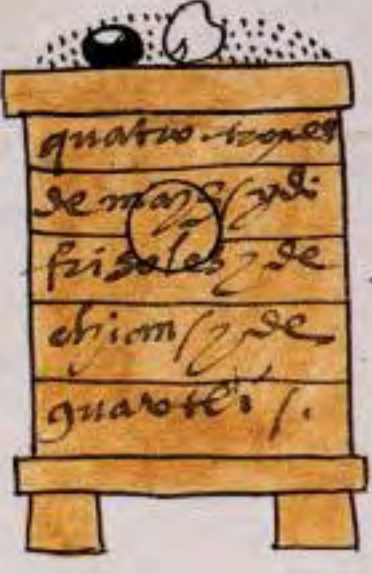 quatro troxes
de mayz / y de
frisoles y de
chian / y de
guavtli /.